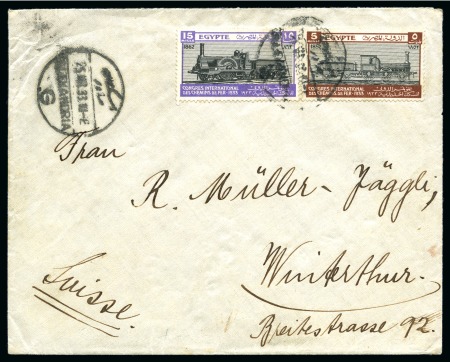 15 EGYPTE ١٥
1862
CONGRES INTERNATIONAL
DES CHEMINS DE FER - 1933
5 EGYPTE ٥
CONGRES INTERNATIONAL
DES CHEMINS DE FER - 1933
ALEXANDRIA
G
Frau
R. Müller-Jäggli,
Winterthur.
Breitestrasse 92.
Suisse.